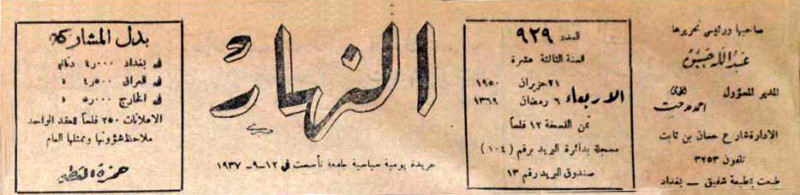 صاحبها ورئيس تحريرها
عبدالله حسن
المدير المسؤول
احمد مدحت
الادارة شارع حسان بن ثابت
تلفون ٣٢٥٣
طبعت بمطبعة شفيق - بغداد
العدد ٩٢٩
السنة الثالثة عشرة
٢١ حزيران ١٩٥٠
الاربعاء ٦ رمضان ١٣٦٩
ثمن النسخة ١٢ فلساً
مسجلة بدائرة البريد برقم (١٠٤)
صندوق البريد رقم ١٣
النهار
جريدة يومية سياسية جامعة تأسست في ١٢-٩-١٩٣٧
بدل المشاركة
في بغداد ٤,٠٠٠ دنانير
في العراق ٤,٥٠٠ »
في الخارج ٥,٠٠٠ »
الاعلانات ٢٥٠ فلساً للعقد الواحد
ملاحظ شؤونها وممثلها العام
حمزة